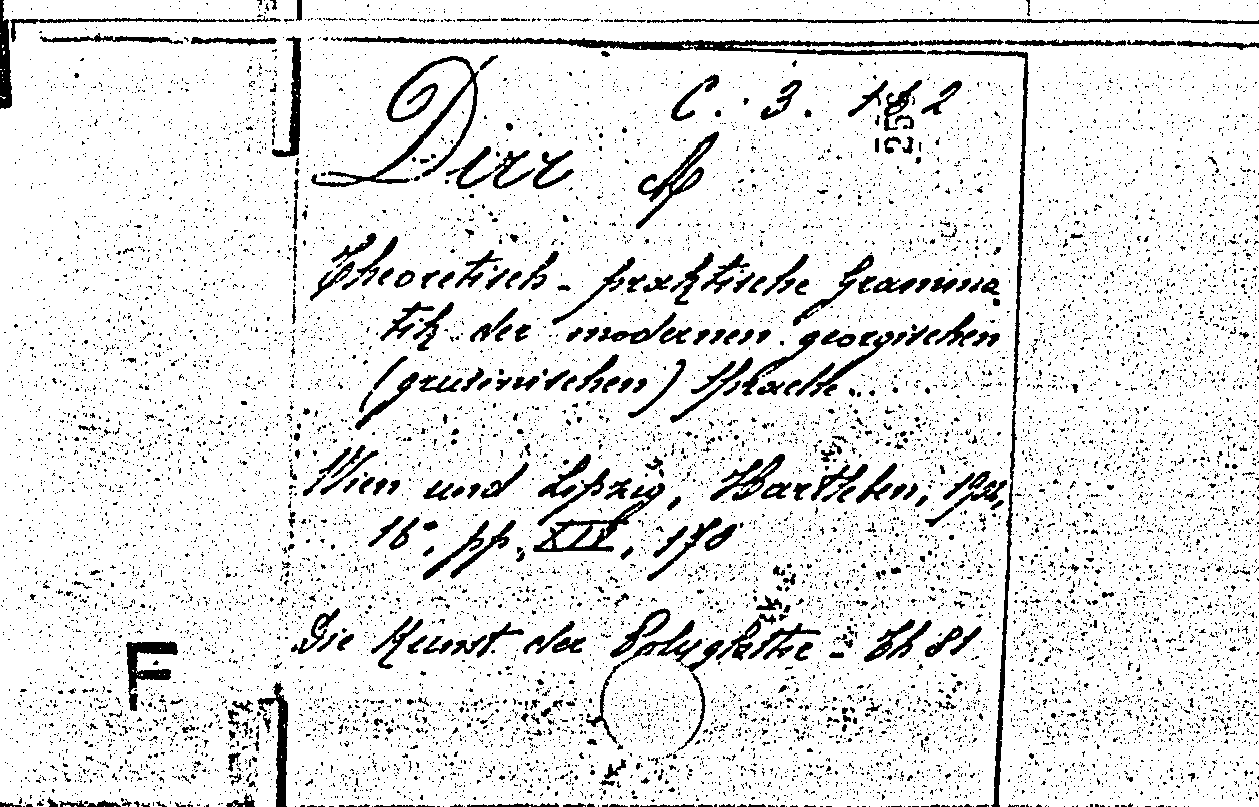 C. 3. 2
255
Dirr A
Theoretisch - praktische Gramma-
tik der modernen georgischen
(grusinischen) Sprache...
Wien und Leipzig, Hartleben,
16°, pp. XIV, 170
Die Kunst der Polyglottie - Th 81
F